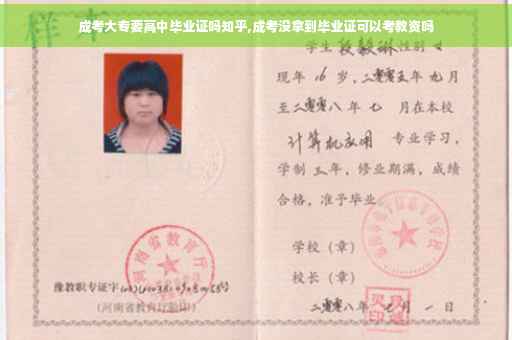 成考大专要高中毕业证吗知乎,成考没拿到毕业证可以考教资吗
样本
学生 段毅琳 性别 女
现年 16 岁,二零零五年 九月
至二零零八年 七 月在本校
计算机应用 专业学习,
学制 三年,修业期满,成绩
合格,准予毕业
学校(章)
校长(章)
河南省教育厅
豫教职专证字
(河南省教育厅验印)
二零零八年 月 一 日